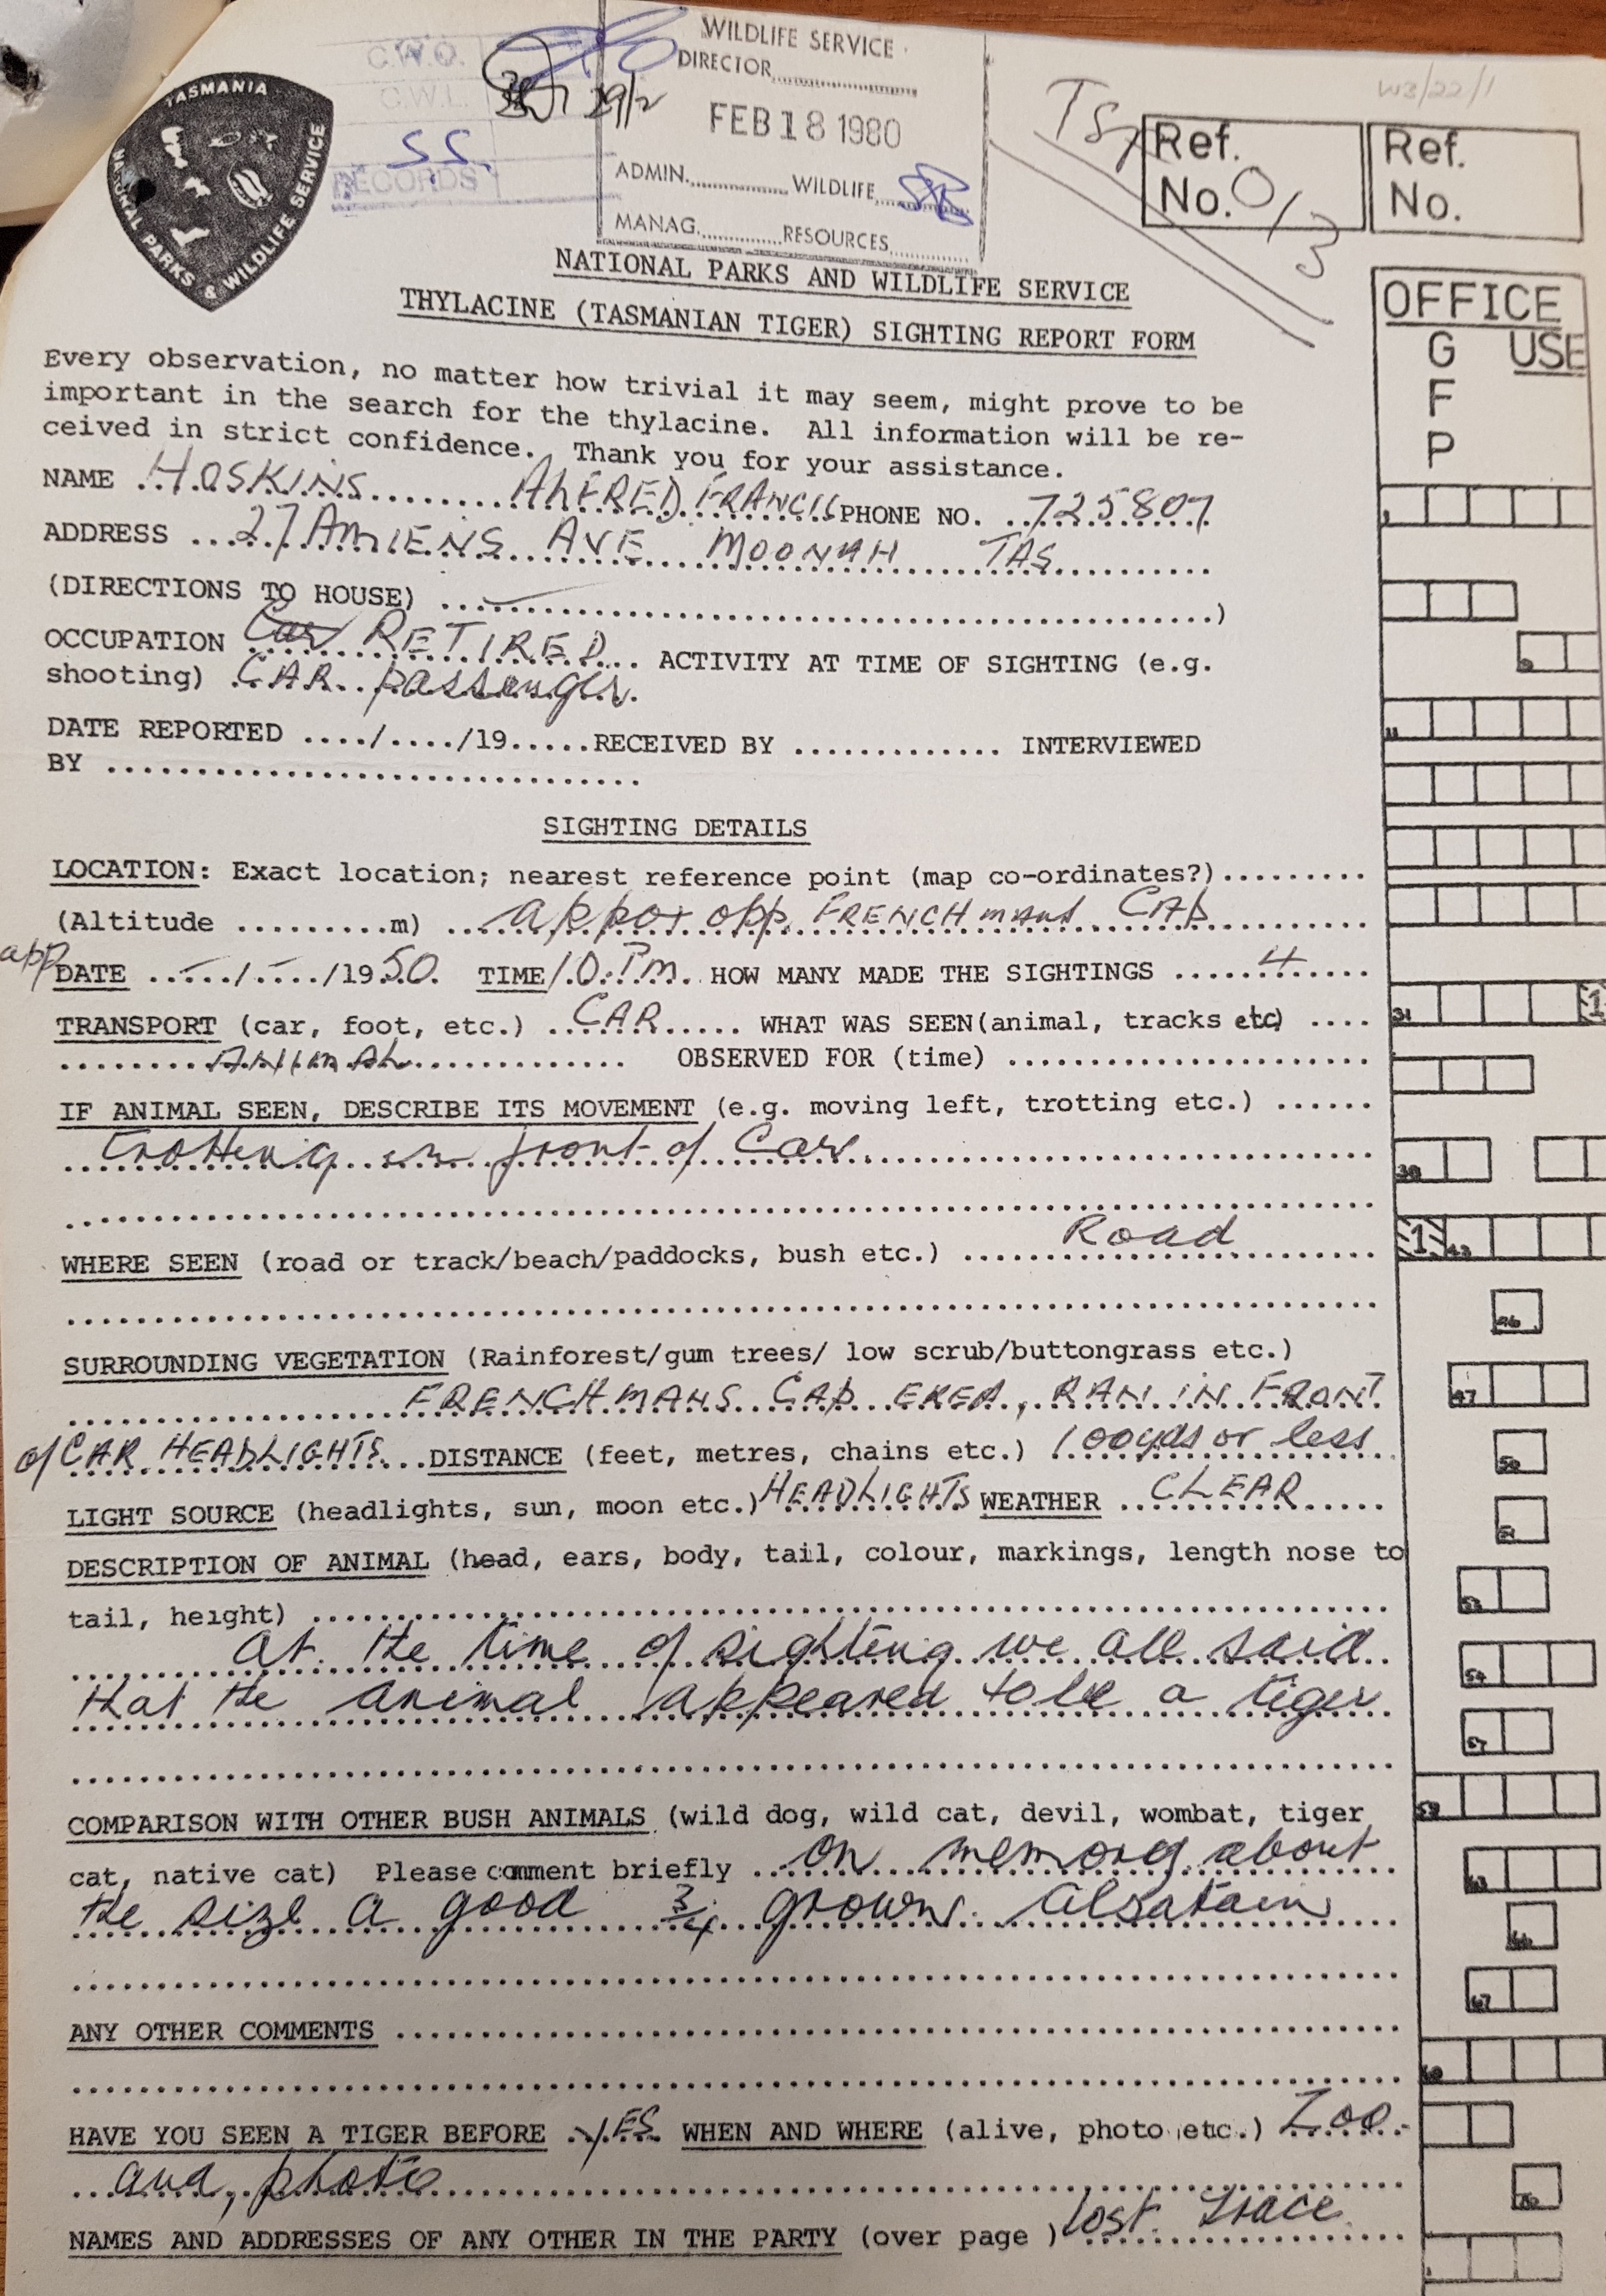 C.W.O.
C.W.L.
S.S.
RECORDS
29/2
WILDLIFE SERVICE
DIRECTOR
FEB 18 1980
ADMIN. WILDLIFE
MANAG. RESOURCES
W3/22/1
Ref.
No. 0/3
Ref.
No.
TASMANIA
NATIONAL PARKS & WILDLIFE SERVICE
NATIONAL PARKS AND WILDLIFE SERVICE
THYLACINE (TASMANIAN TIGER) SIGHTING REPORT FORM
OFFICE
USE
G
F
P
Every observation, no matter how trivial it may seem, might prove to be
important in the search for the thylacine. All information will be re-
ceived in strict confidence. Thank you for your assistance.
NAME HOSKINS ALFRED FRANCIS PHONE NO. 725807
ADDRESS 27 AMIENS AVE MOONAH TAS
(DIRECTIONS TO HOUSE) )
OCCUPATION Car RETIRED ACTIVITY AT TIME OF SIGHTING (e.g.
shooting) CAR passenger.
DATE REPORTED ..../..../19..... RECEIVED BY ............. INTERVIEWED
BY ................................
SIGHTING DETAILS
LOCATION: Exact location; nearest reference point (map co-ordinates?).........
(Altitude .........m) appox opp FRENCHmans CAP
app DATE - / - /1950. TIME 10.Pm. HOW MANY MADE THE SIGHTINGS 4
TRANSPORT (car, foot, etc.) CAR WHAT WAS SEEN (animal, tracks etc) ....
ANIMAL OBSERVED FOR (time) ....................
IF ANIMAL SEEN, DESCRIBE ITS MOVEMENT (e.g. moving left, trotting etc.) ......
trotting in front of Car
WHERE SEEN (road or track/beach/paddocks, bush etc.) Road
SURROUNDING VEGETATION (Rainforest/gum trees/ low scrub/buttongrass etc.)
FRENCHMANS CAP EREA, RAN IN FRONT
of CAR HEADLIGHTS DISTANCE (feet, metres, chains etc.) 100yds or less
LIGHT SOURCE (headlights, sun, moon etc.) HEADLIGHTS WEATHER CLEAR
DESCRIPTION OF ANIMAL (head, ears, body, tail, colour, markings, length nose to
tail, height)
at the time of sighting we all said
that the animal appeared to be a tiger
COMPARISON WITH OTHER BUSH ANIMALS (wild dog, wild cat, devil, wombat, tiger
cat, native cat) Please comment briefly on memory about
the size a good 3/4 grown alsatain
ANY OTHER COMMENTS
HAVE YOU SEEN A TIGER BEFORE YES WHEN AND WHERE (alive, photo etc.) Zoo
and, photo
NAMES AND ADDRESSES OF ANY OTHER IN THE PARTY (over page ) lost trace